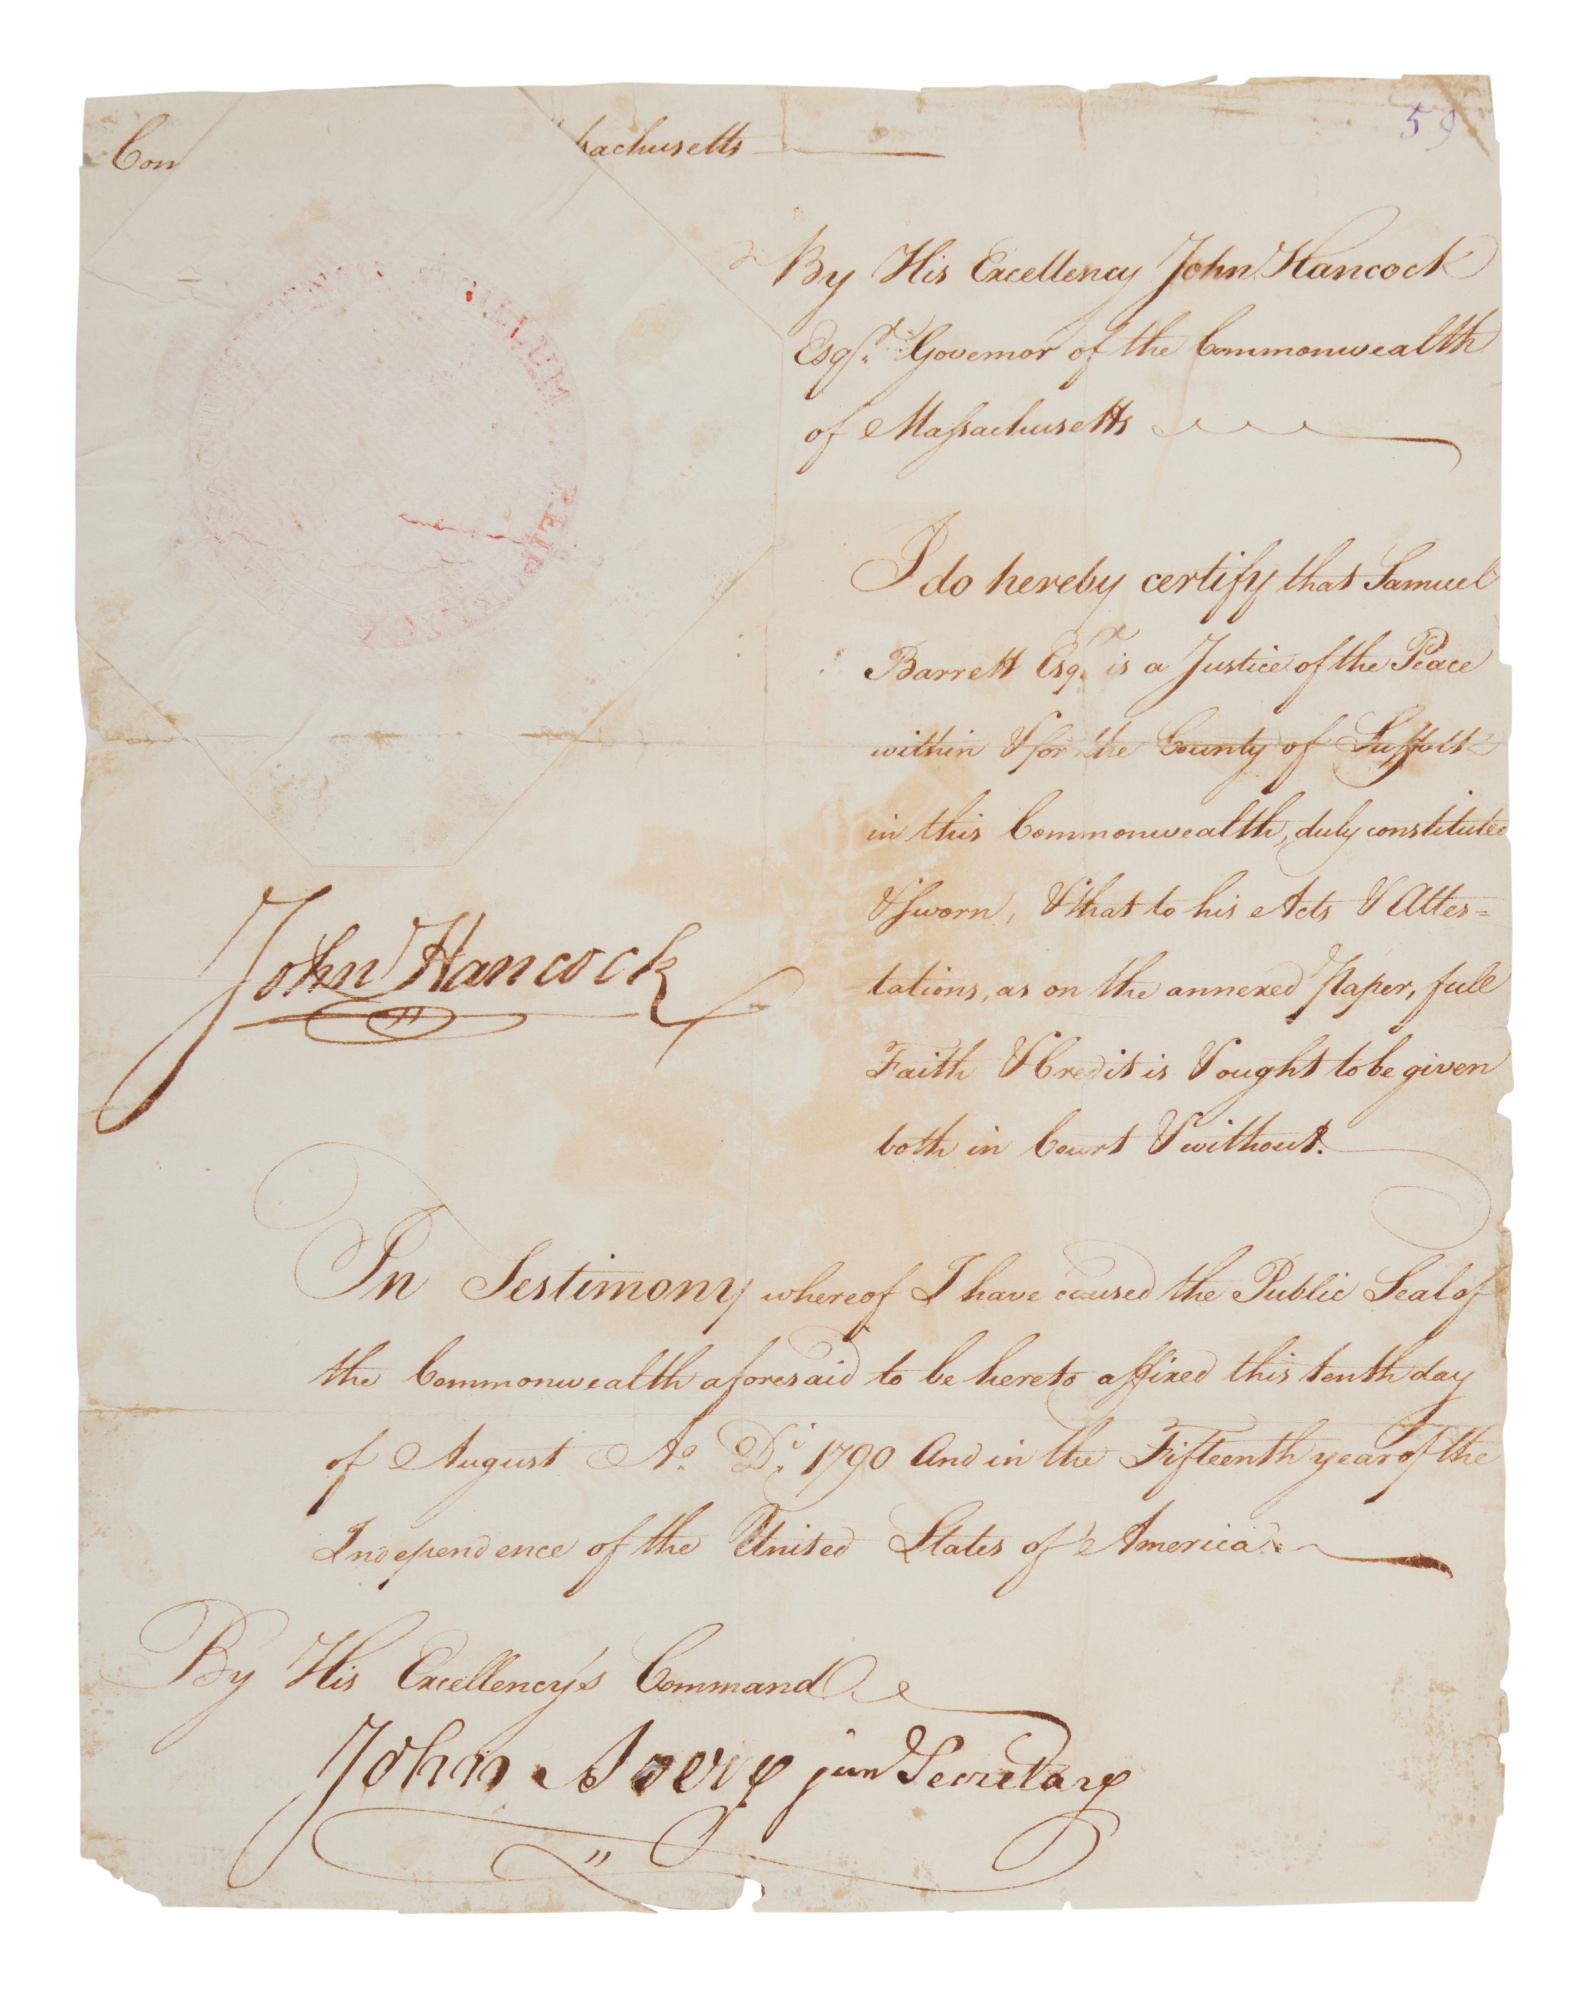 Com
sachusetts
59
By His Excellency John Hancock
Esqr. Governor of the Commonwealth
of Massachusetts
SIGILLUM
REIP
I do hereby certify that Samuel
Barrett Esqr. is a Justice of the Peace
within & for the County of Suffolk
in this Commonwealth, duly constituted
& sworn, & that to his Acts & Attes=
tations, as on the annexed Paper, full
Faith & Credit is & ought to be given
both in Court & without.
John Hancock
In Testimony whereof I have caused the Public Seal of
the Commonwealth aforesaid to be hereto affixed this tenth day
of August Ao. Di. 1790 And in the Fifteenth year of the
Independence of the United States of America.
By His Excellency's Command
John Avery jun Secretary